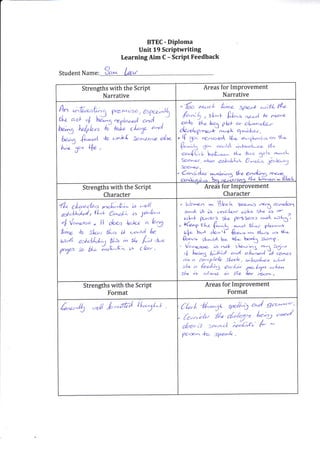 BTEC - Diploma
Unit 19 Scriptwriting
Learning Aim C – Script Feedback
Student Name: Sam Law
Strengths with the Script
Narrative
An interesting premise, especially
the act of being replaced and
being helpless to take charge and
being forced to watch someone else
live your life.
Areas for Improvement
Narrative
- Too much time spent with the
family, that film's need to move
onto the key plot or character
development much quicker.
- If you removed the emphasis on the
family you could introduce the
conflict between the two girls much
sooner also establish Emilia's jealousy
sooner.
- Consider making the ending more
the Woman in Black
Strengths with the Script
Character
The characters motivation is well
established, that Emilia is jealous
of Vanessa. It does take a long
time to show this it would be
worth establishing this in the first two
pages so the motivation is clear.
Areas for Improvement
Character
- Women in Black seems very random
and it is unclear who she is or
what powers she possess and why?
- Keep the family and their planned
life but don't focus on this as the
focus should be the body swap.
Vanessa is not showing any signs
of being bullied and when it comes
as a complete shock, introduce what
she is feeling earlier perhaps when
she is alone in the her room.
Strengths with the Script
Format
Generally well formatted throughout.
Areas for Improvement
Format
- Check through spelling and grammar.
- Consider the dialogue being used
does it sound realistic for a
person to speak.